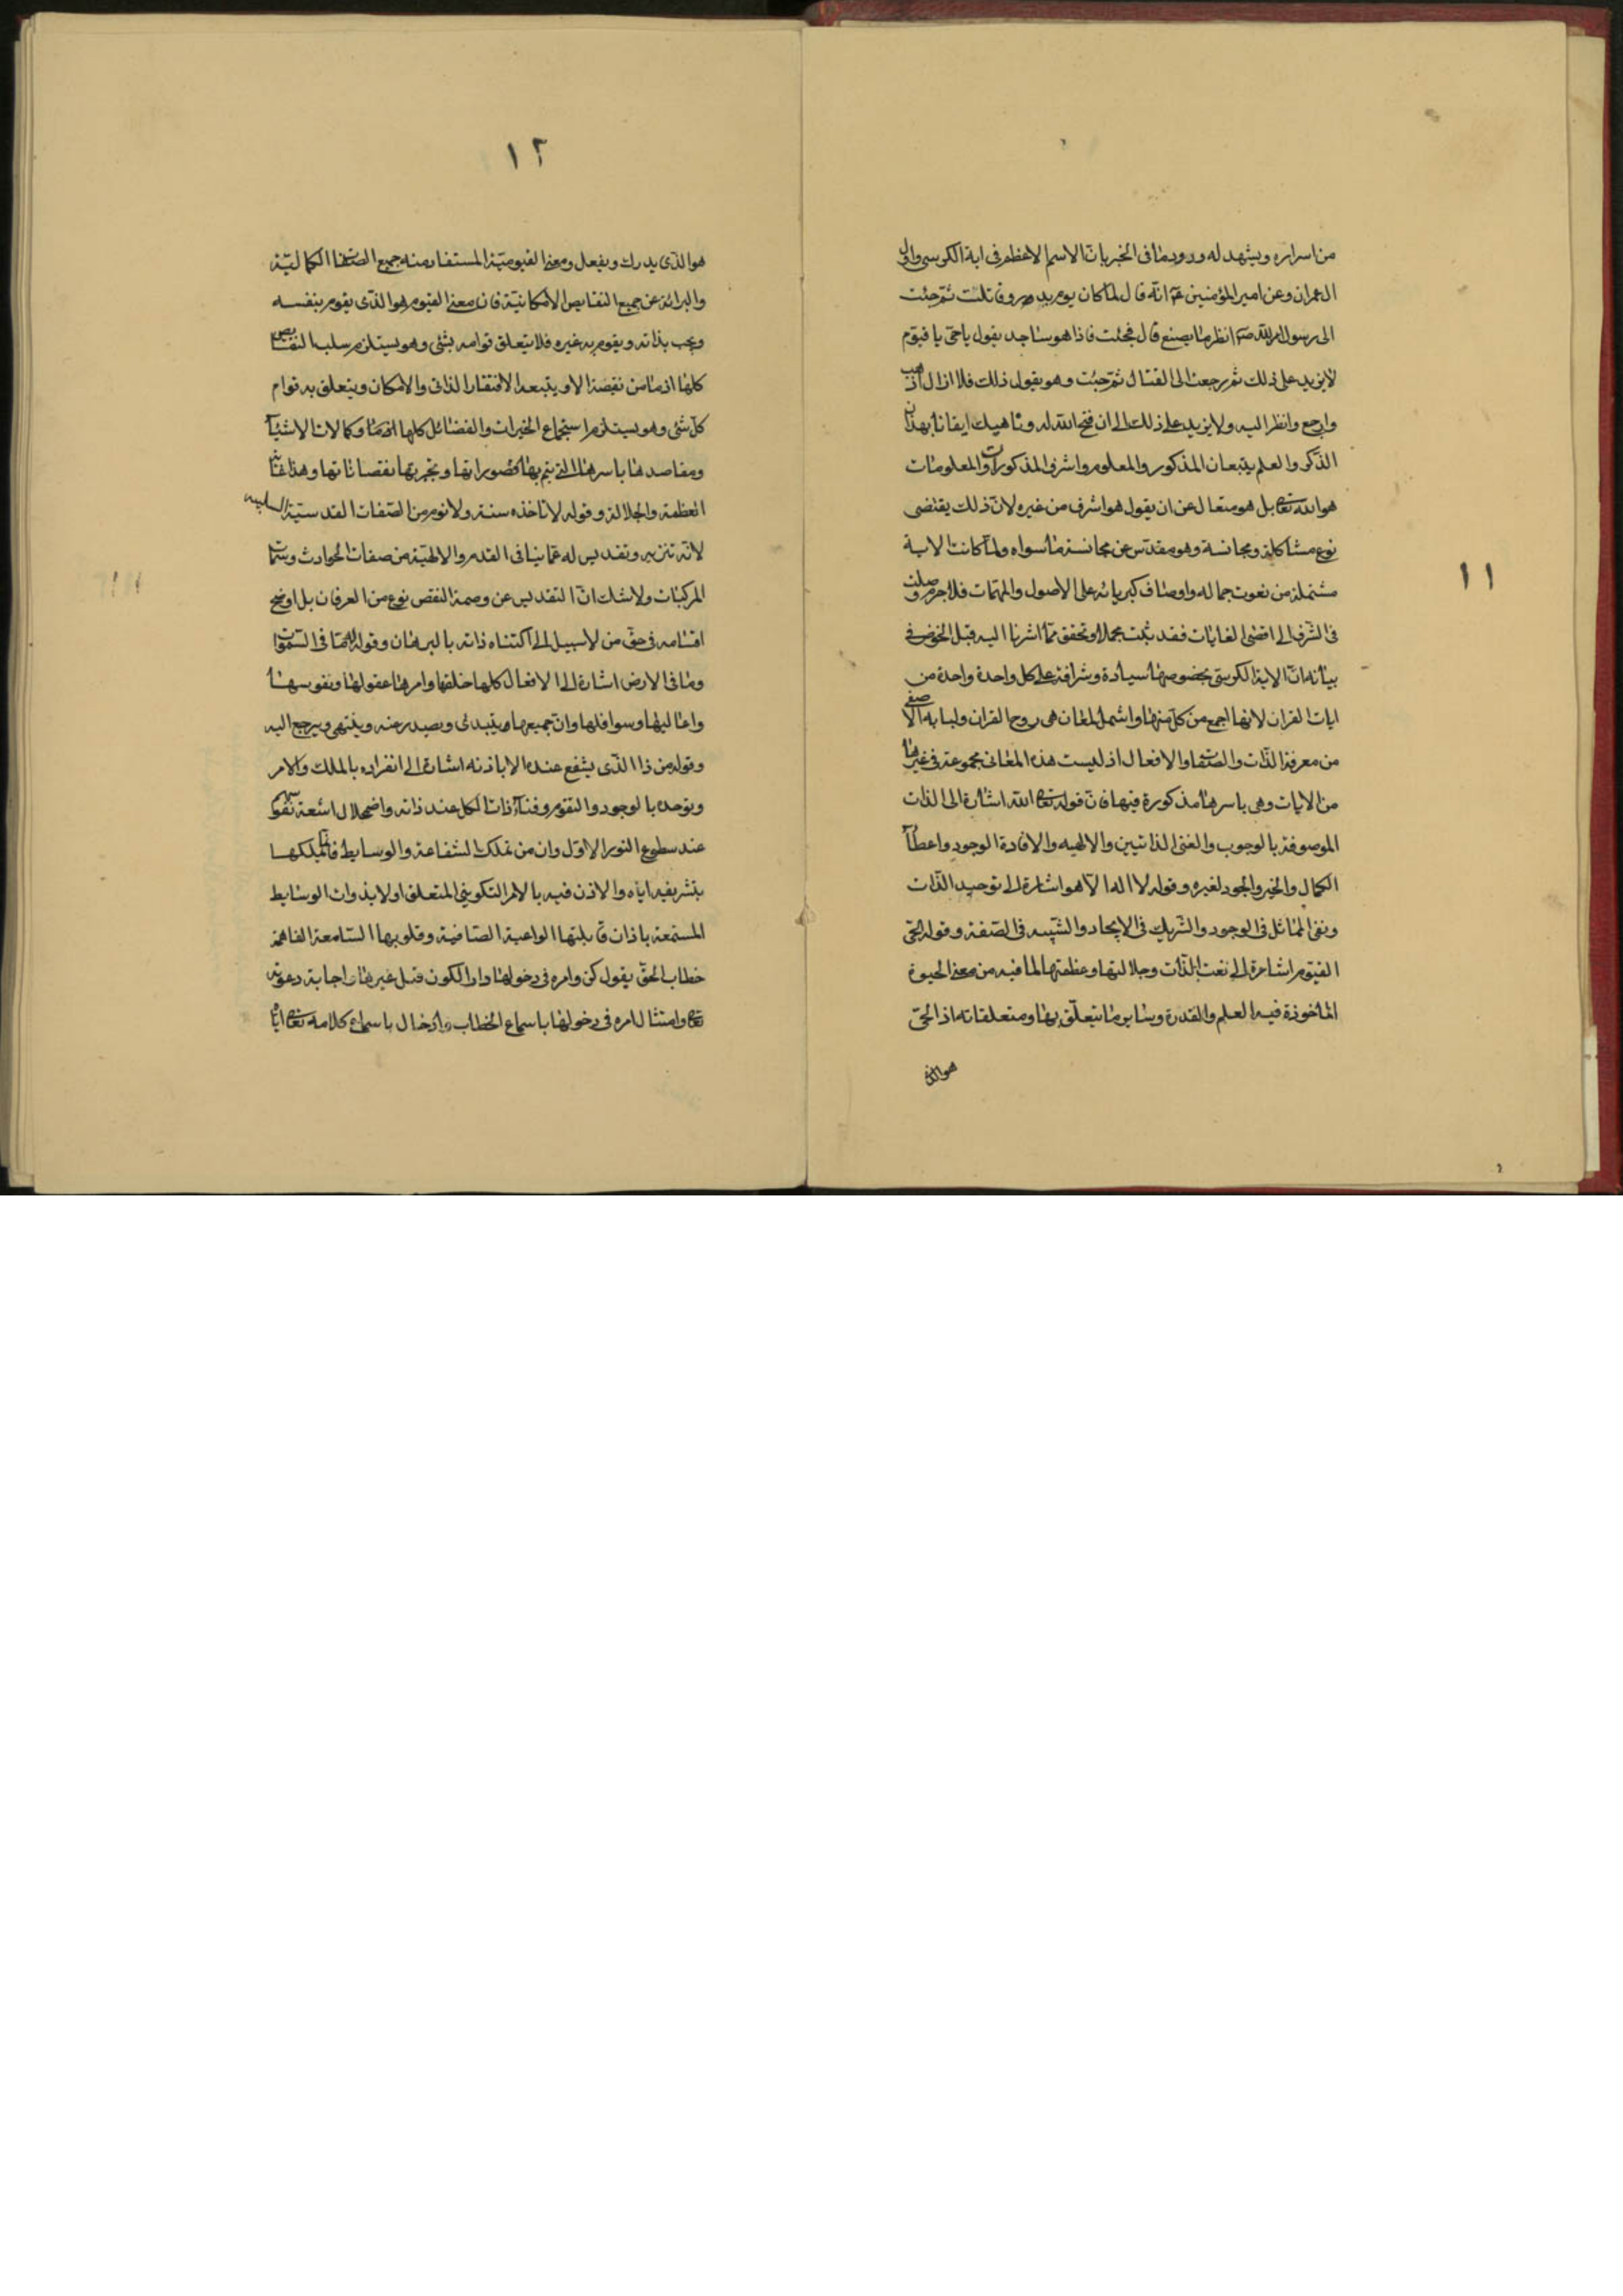 ١١
من اسراره ويشهد له ورود ما فى الخبر بان الاسم الاعظم فى اية الكرسى واول
ال عمران وعن امير المؤمنين عم انه قال لما كان يوم بدر وقاتلت ثم جئت
الى رسول الله صم انظر ما يصنع قال فجئت فاذا هو ساجد يقول ياحى يا قيوم
لا يزيد على ذلك ثم رجعت الى القتال ثم جئت وهو يقول ذلك فلا ازال اذهب
وارجع وانظر اليه ولا يزيد على ذلك الى ان فتح الله له وناهيك ايقانا بهذا ان
الذكر والعلم يتبعان المذكور والمعلوم واشرف المذكورات والمعلومات
هو الله تعا بل هو متعال عن ان يقول هو اشرف من غيره لان ذلك يقتضى
نوع مشاكلة ومجانسة وهو مقدس عن مجانسة ما سواه ولما كانت الاية
مشتملة من نعوت جماله واوصاف كبريائه على الاصول والمهمات فلا جرم وصلت
فى الشرف الى اقصى الغايات فقد ثبت مجملا وتحقق مما اشرنا اليه قبل الخوض فى
بيانه ان الاية الكرسى بخصوصها سيادة وشرافة على كل واحدة واحدة من
ايات القران لانها اجمع من كل منها واشمل لمعان هى روح القران ولبابه الاصفى
من معرفة الذات والصفات والافعال اذ ليست هذه المعانى مجموعة فى غيرها
من الايات وهى باسرها مذكورة فيها فان قوله تعا الله اشارة الى الذات
الموصوفة بالوجوب والغنى الذاتيين والالهيه والافادة الوجود واعطاء
الكمال والخير والجود لغيره وقوله لا اله الا هو اشارة الى توحيد الذات
ونفى المماثل فى الوجود والشريك فى الايجاد والشبيه فى الصفة وقوله الحى
القيوم اشارة الى نعت الذات وجلالتها وعظمتها لما فيه من معنى الحيوة
الماخوذة فيه العلم والقدرة وسايرما يتعلق بها ومتعلقاته اذ الحى
هو الذى
١٢
هو الذى يدرك ويفعل ومعنى القيومية المستفاد منه جميع الصفات الكمالية
والبرائة عن جميع النقايص الامكانية فان معنى القيوم هو الذى يقوم بنفسه
ويجب بذاته ويقوم به غيره فلا يتعلق قوامه بشئ وهو يستلزم سلب النقايص
كلها اذ ما من نقيصة الا ويتبعه الافتقار الذاتى والامكان ويتعلق به قوام
كل شئ وهو يستلزم استجماع الخيرات والفضائل كلها وكمالات الاشياء
ومقاصدها باسرها التى يتم بها قصوراتها وتجبر بها نقصاناتها وهذا غاية
العظمة والجلالة وقوله لا تاخذه سنة ولا نوم من الصفات القدسية السلبيه
لانه تنزيه وتقديس له عما ينافى القدم والالهية من صفات الحوادث وسمات
المركبات ولا شك ان التقديس عن وصمة النقص نوع من العرفان بل اوضح
اقسامه فى حق من لا سبيل الى اكتناه ذاته بالبرهان وقوله له ما فى السموات
وما فى الارض اشارة الى الافعال كلها خلقها وامرها عقولها ونفوسها
واعاليها وسوافلها وان جميعها يبتدئ ويصدر عنه وينتهى ويرجع اليه
وقوله من ذا الذى يشفع عنده الا باذنه اشارة الى انفراده بالملك والامر
وتوحده بالوجود والتقوم وفناء ذات الكل عند ذاته واضمحلال اشعة نفوسهم
عند سطوع النور الاول وان من تملك الشفاعة والوسايط فانما يملكها
بتشريفه اياه والاذن فيه بالامر التكوينى المتعلق اولا بذوات الوسايط
المستمعة باذان قابليتها الواعية الصافية وقلوبها السامعة الفاهمة
خطاب الحق بقول كن وامره فى دخولها دار الكون قبل غيرها واجابة دعوته
تعا وامتثال امره فى دخولها باسماع الخطاب وادخال باسماع كلامه تعا اياها